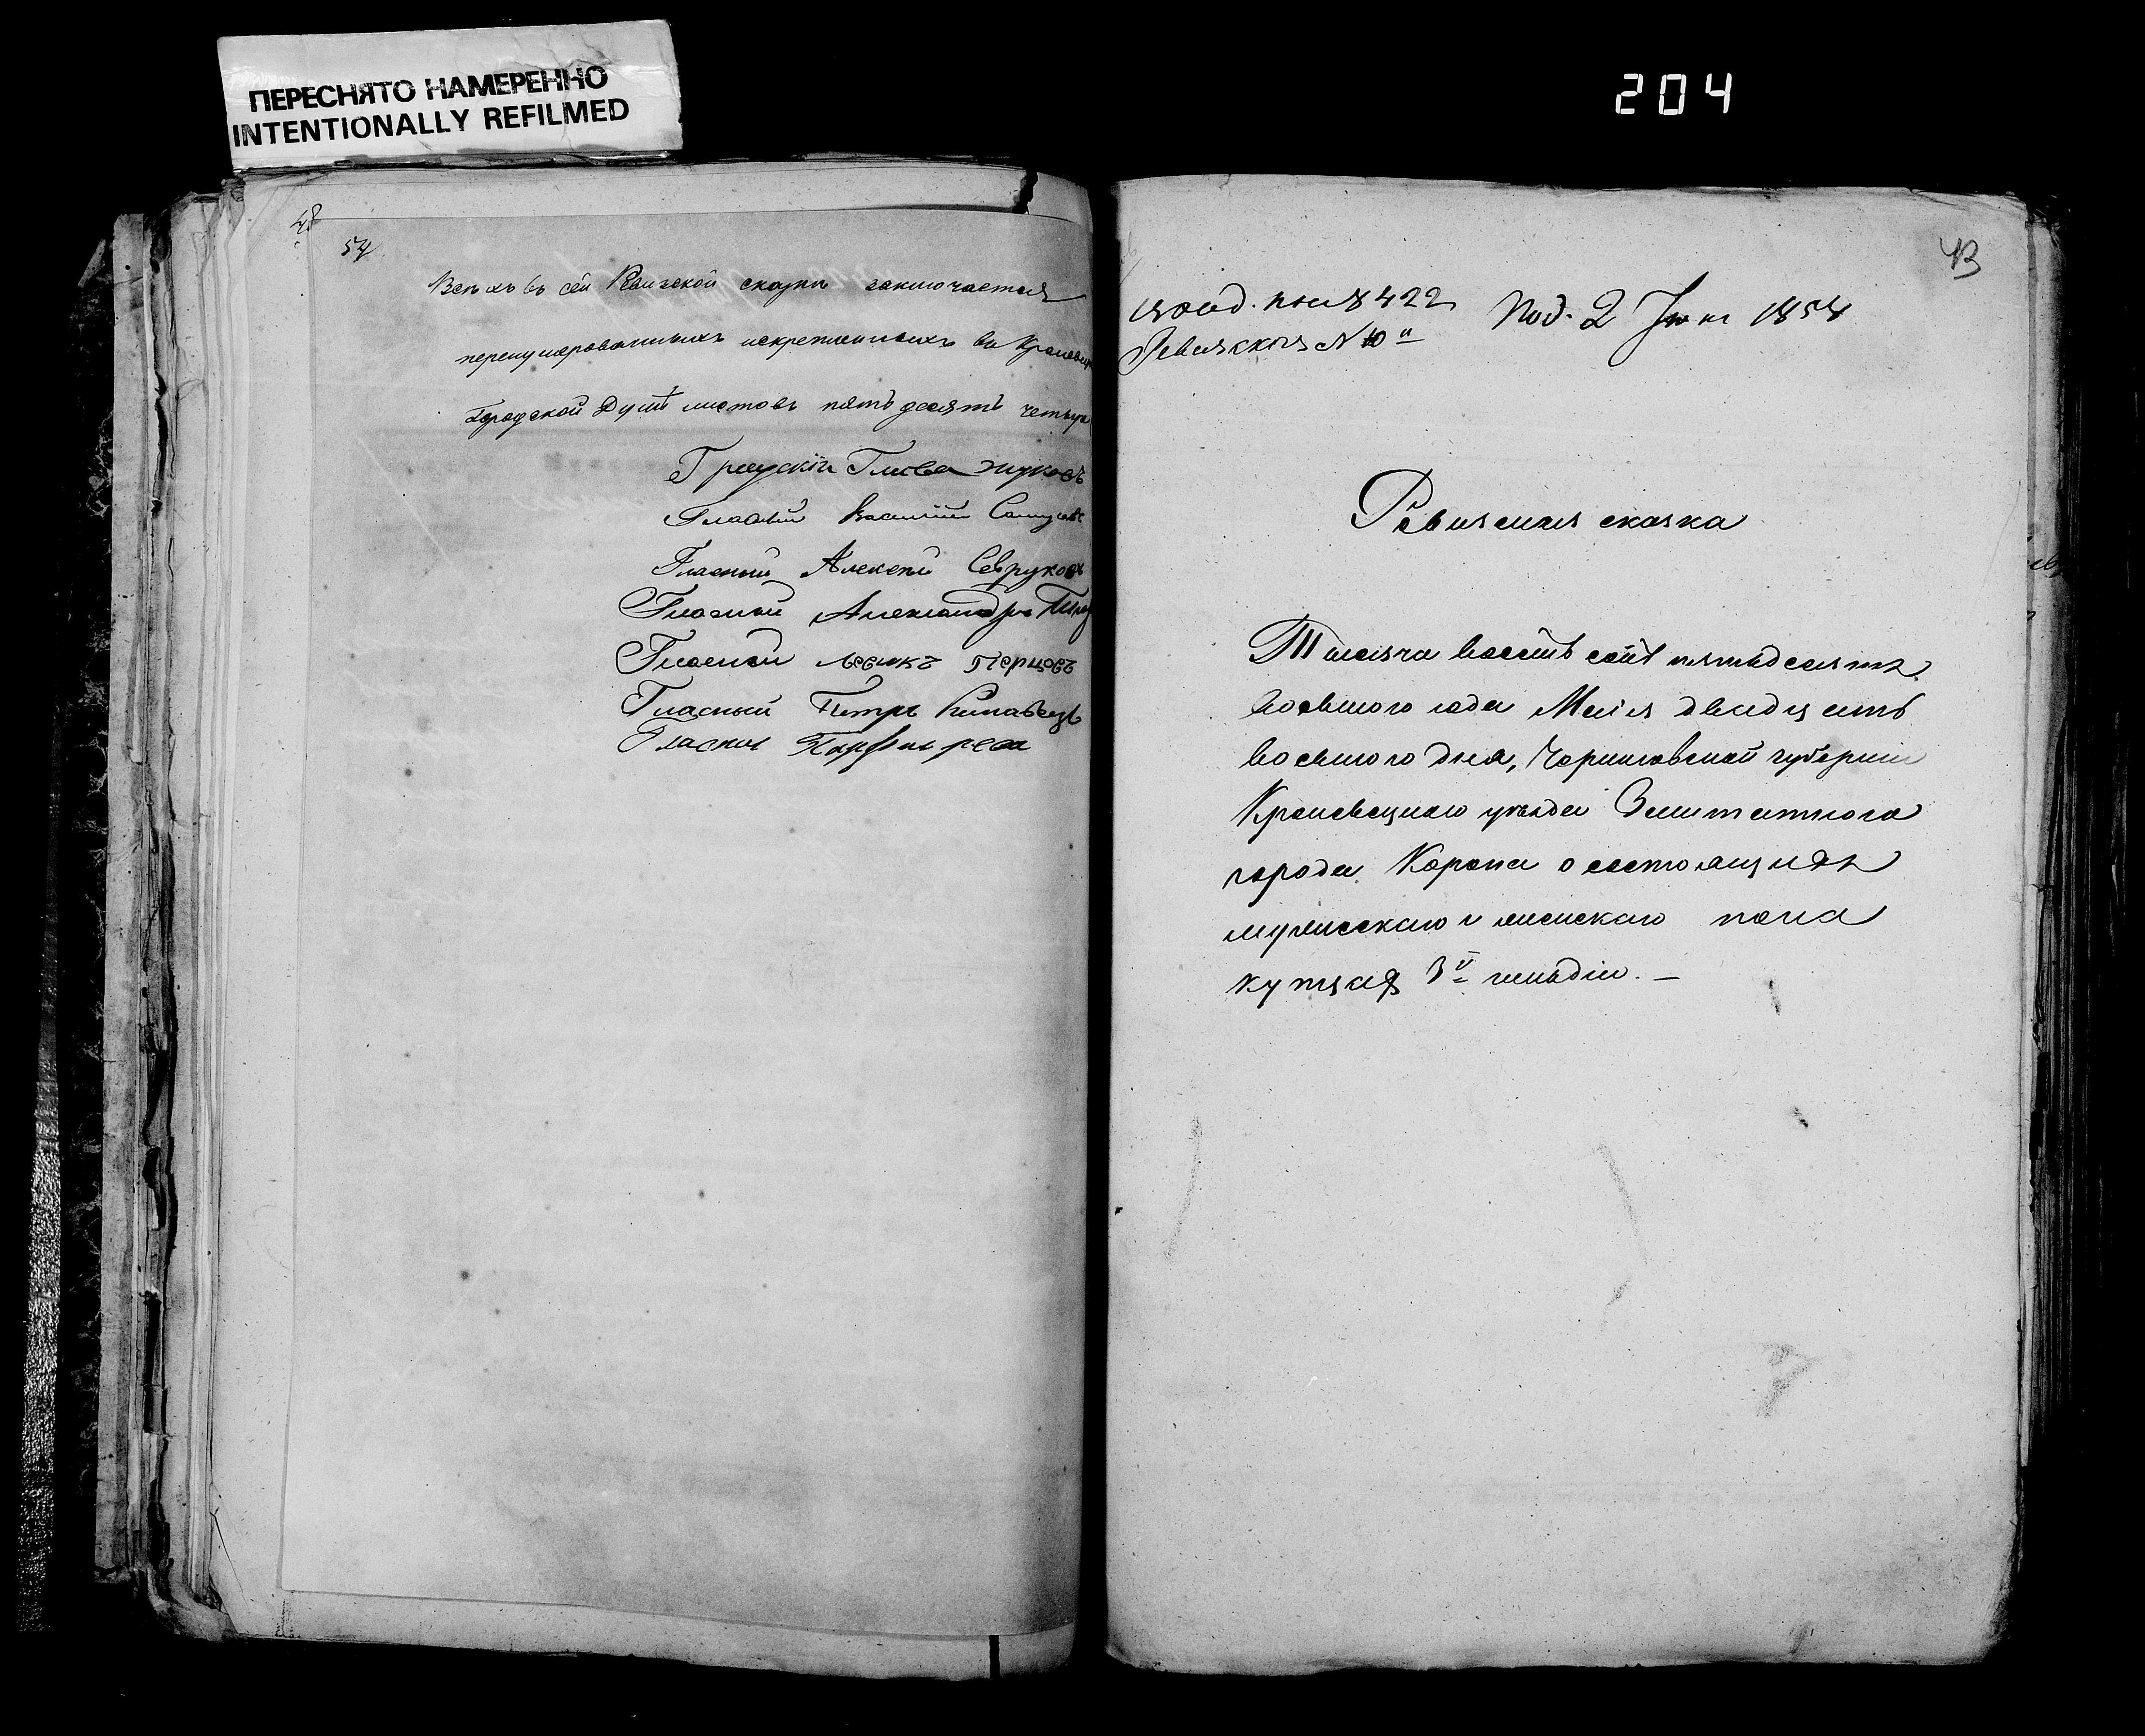 ПЕРЕСНЯТО НАМЕРЕННО
INTENTIONALLY REFILMED
204
48
54
Всѣхъ въ сей Ревизской сказки заключается
перенумерованныхъ искрепленныхъ въ Кролевец
Городской Думѣ листовъ пятьдесятъ четыре
Градскій Глава Жуковъ
Гласный Василій
Гласный Алексѣй Севруковъ
Гласный Александръ
Гласный Перцовъ
Гласный Петръ
Гласный
422 Под. 2 Іюня 1858
Ревизская №
Ревизская сказка
Тысяча восемь сотъ пятьдесятъ
восьмого года Маія двадцать
восьмого дня, Черниговской губерніи
Кролевецкаго уѣзда Заштатнаго
города Коропа о состоящихъ
мужескаго и женскаго пола
купцахъ 3й гильдіи. —